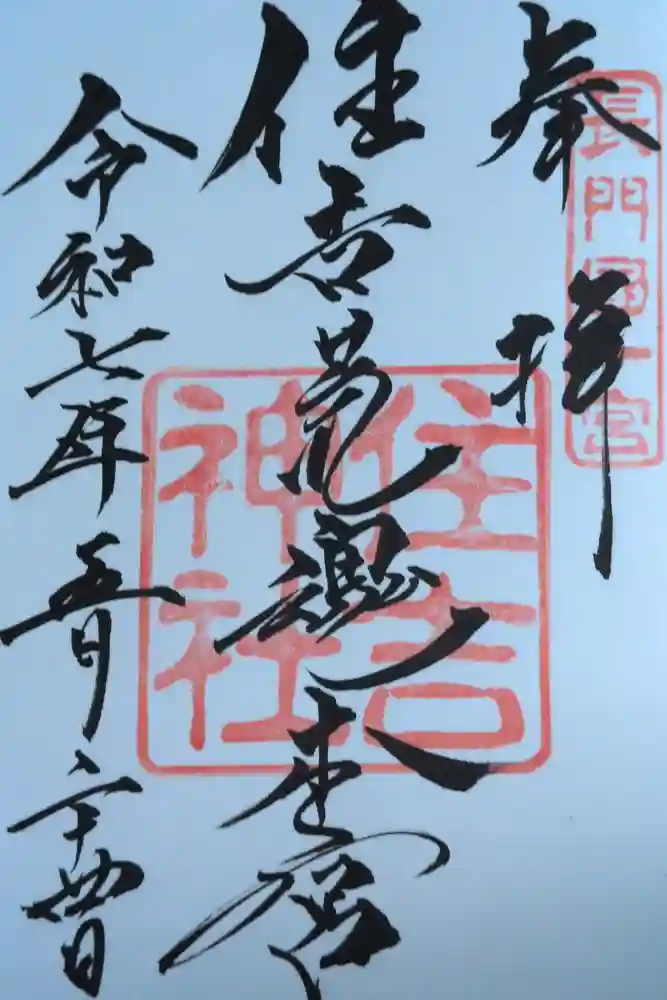 奉拝
長門國一宮
住吉荒魂本宮
住吉神社
令和七年五月二十四日